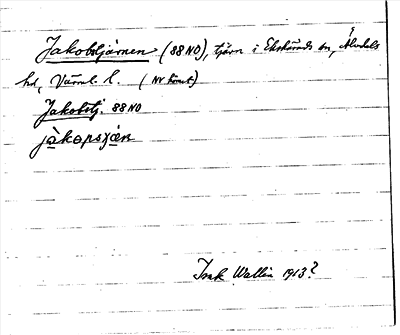 Jakobstjärnen (88 NO), tjärn i Ekshärads sn, Älvdals
hd, Värml. l.
Jakobstj. 88 NO
jàkɵpsɟæ̀n
Isak Wallin 1913?